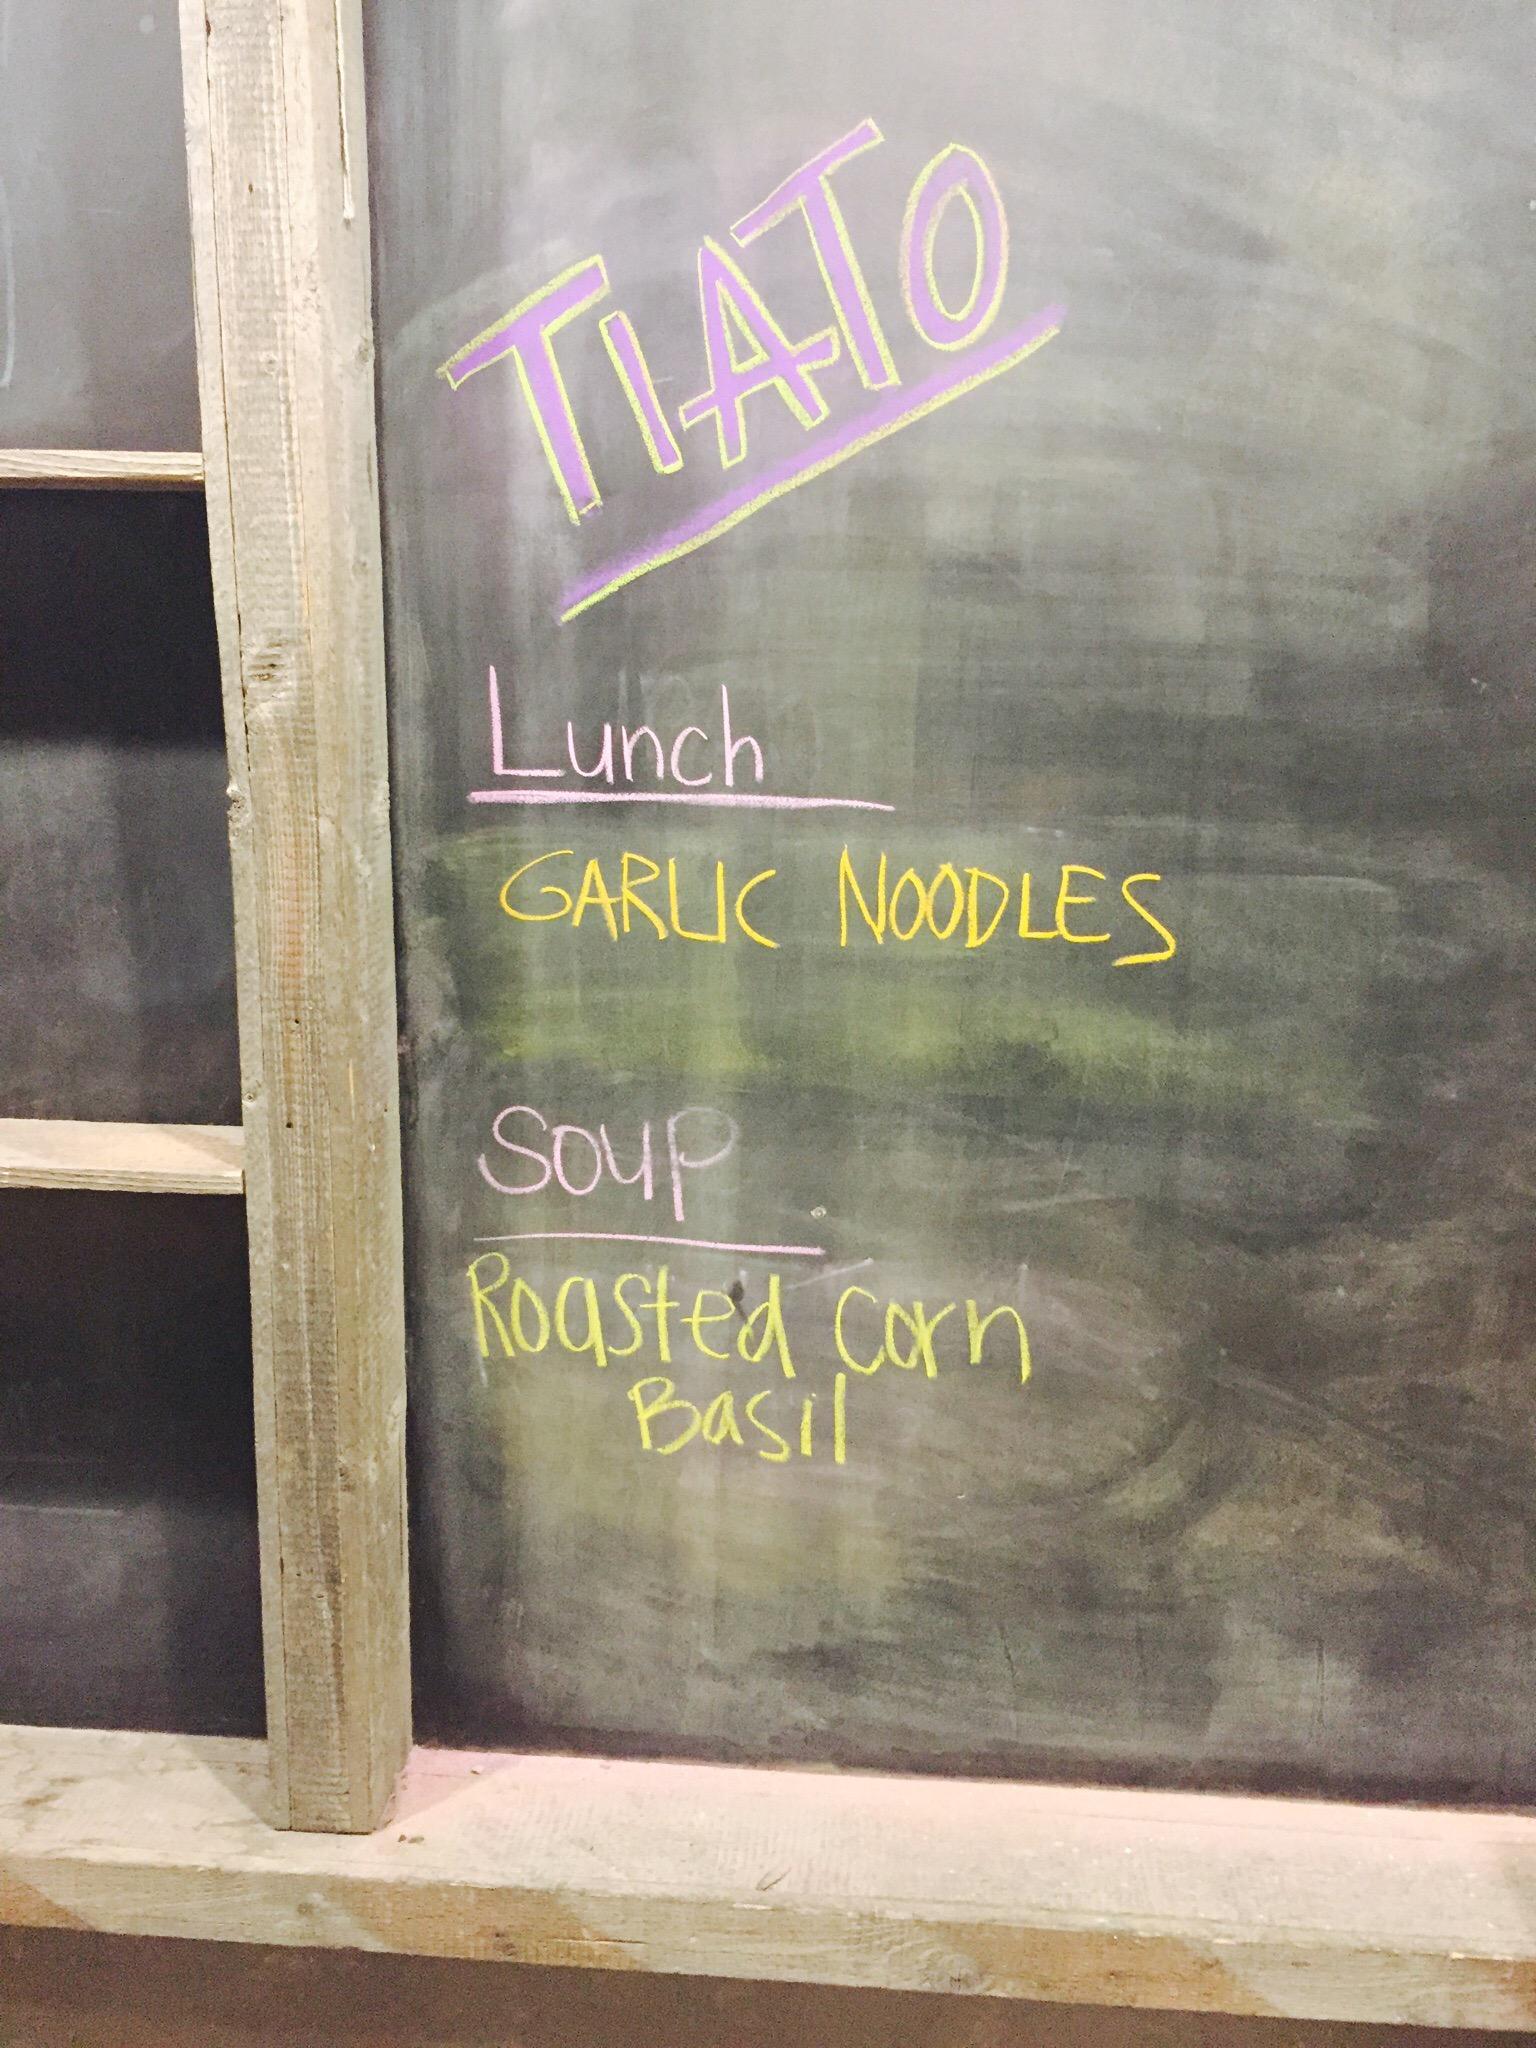 TIATO
Lunch
GARLIC NOODLES
SOUP
Roasted corn
Basil